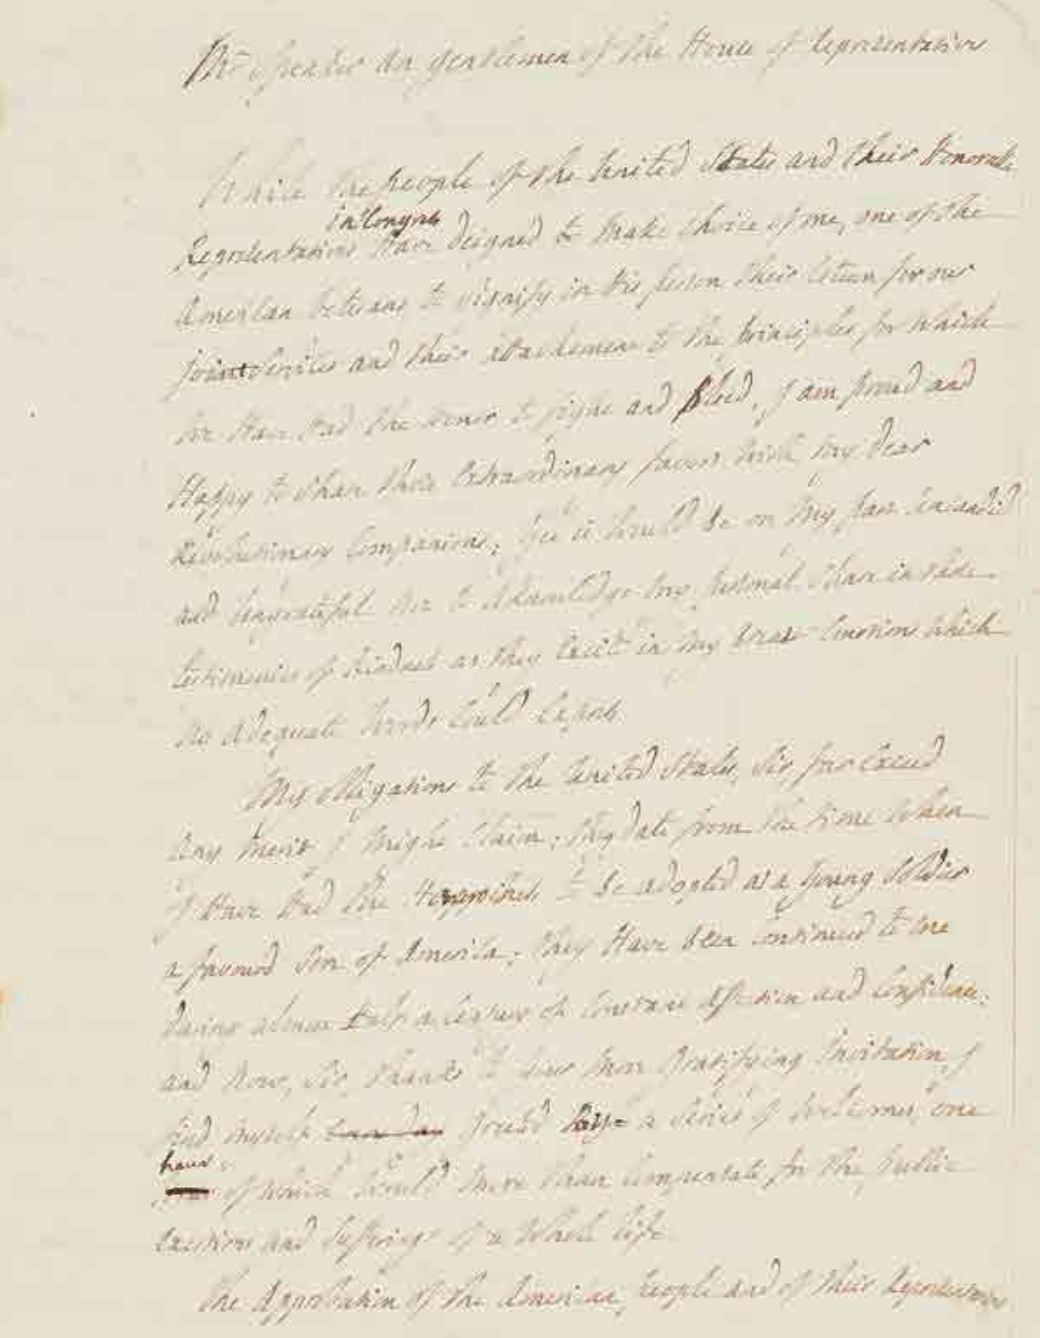 Mr Speaker and gentlemen of the House of Representatives
While the people of the United States and their Honorable
in Congress
Representatives Have deigned to make choice of me, one of the
American Veterans to signify in His person their esteem for our
joint Services and their attachement to the principles for Which
We Have Had the Honor to fight and bleed, I am proud and
Happy to share those extraordinary favors with my dear
Revolutionary Companions; Yet it would be on My part uncandid
and ungrateful not to acknowledge my personal share in those
testimonies of Kindness as they excite in my breast emotions Which
no adequate words could express
My obligations to the United States, Sir, far exceed
any merit I might Claim; they date from the time When
I Have Had the Happiness to be adopted as a young Soldier
a favoured Son of America; they Have been continued to me
during almost half a Century of constant affection and confidence;
and now, Sir, thanks to your most gratifying Invitation, I
find myself greeted by a Series of Welcomes, one
hour
of which would more than compensate for the public
exertions and sufferings of a Whole life
The Approbation of the American people and of their Representatives